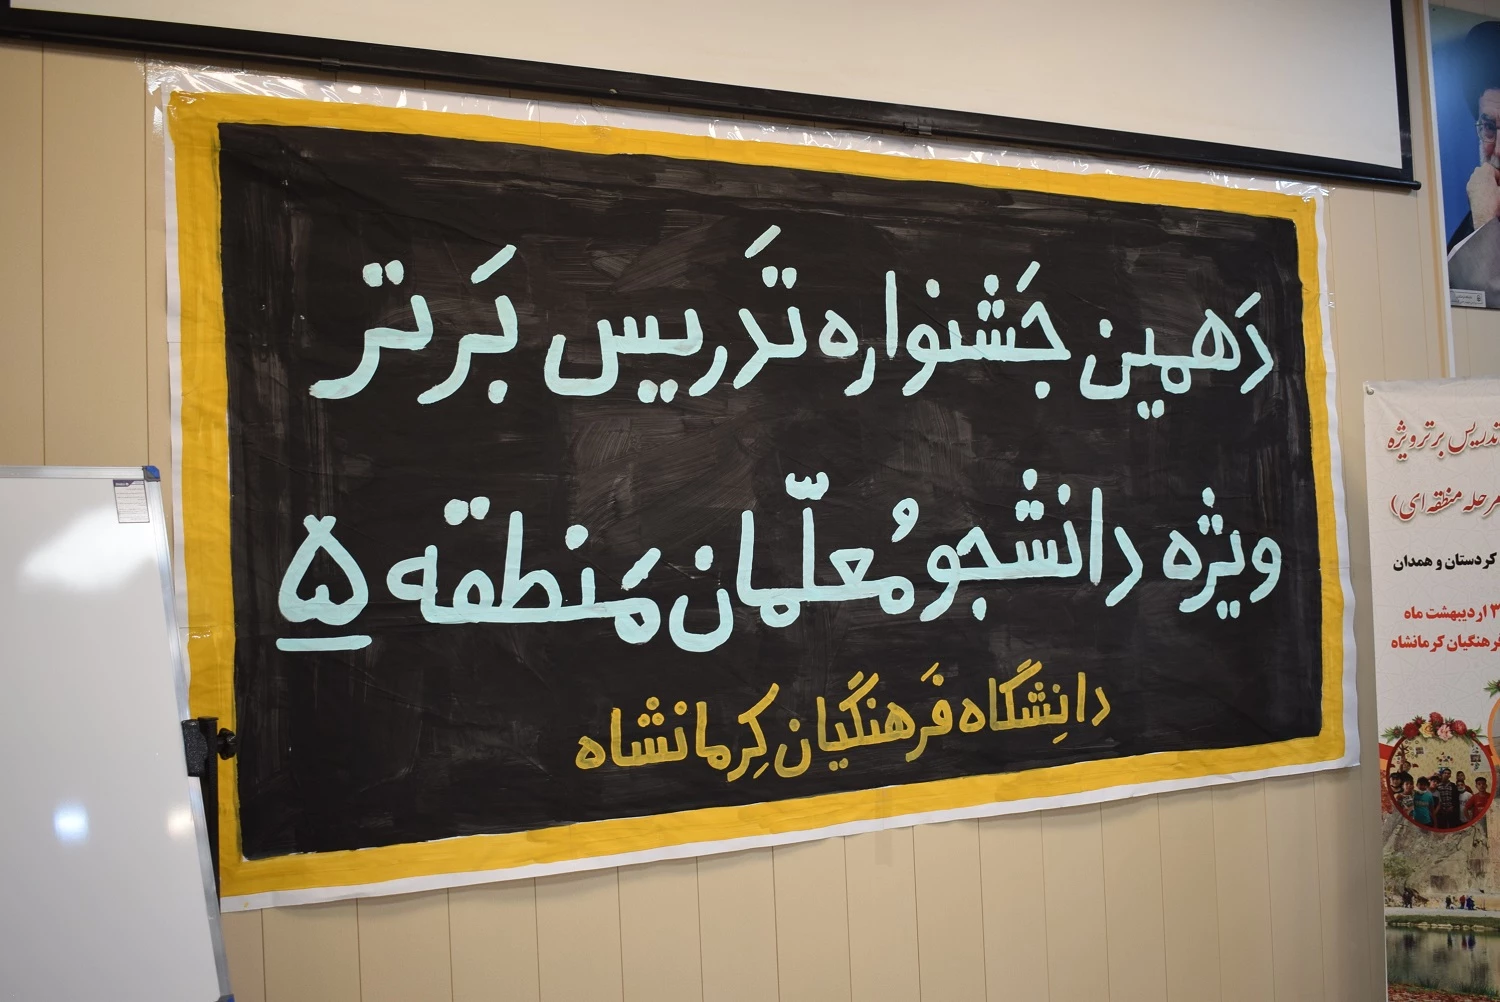 دَهمین جَشنواره تَدریس بَرتر
ویژه دانشجو مُعلّمان مَنطقه ۵
دانِشگاه فَرهنگیان کِرمانشاه
تدریس برتر ویژه
مرحله منطقه ای)
کردستان و همدان
۳ اردیبهشت ماه
فرهنگیان کرمانشاه